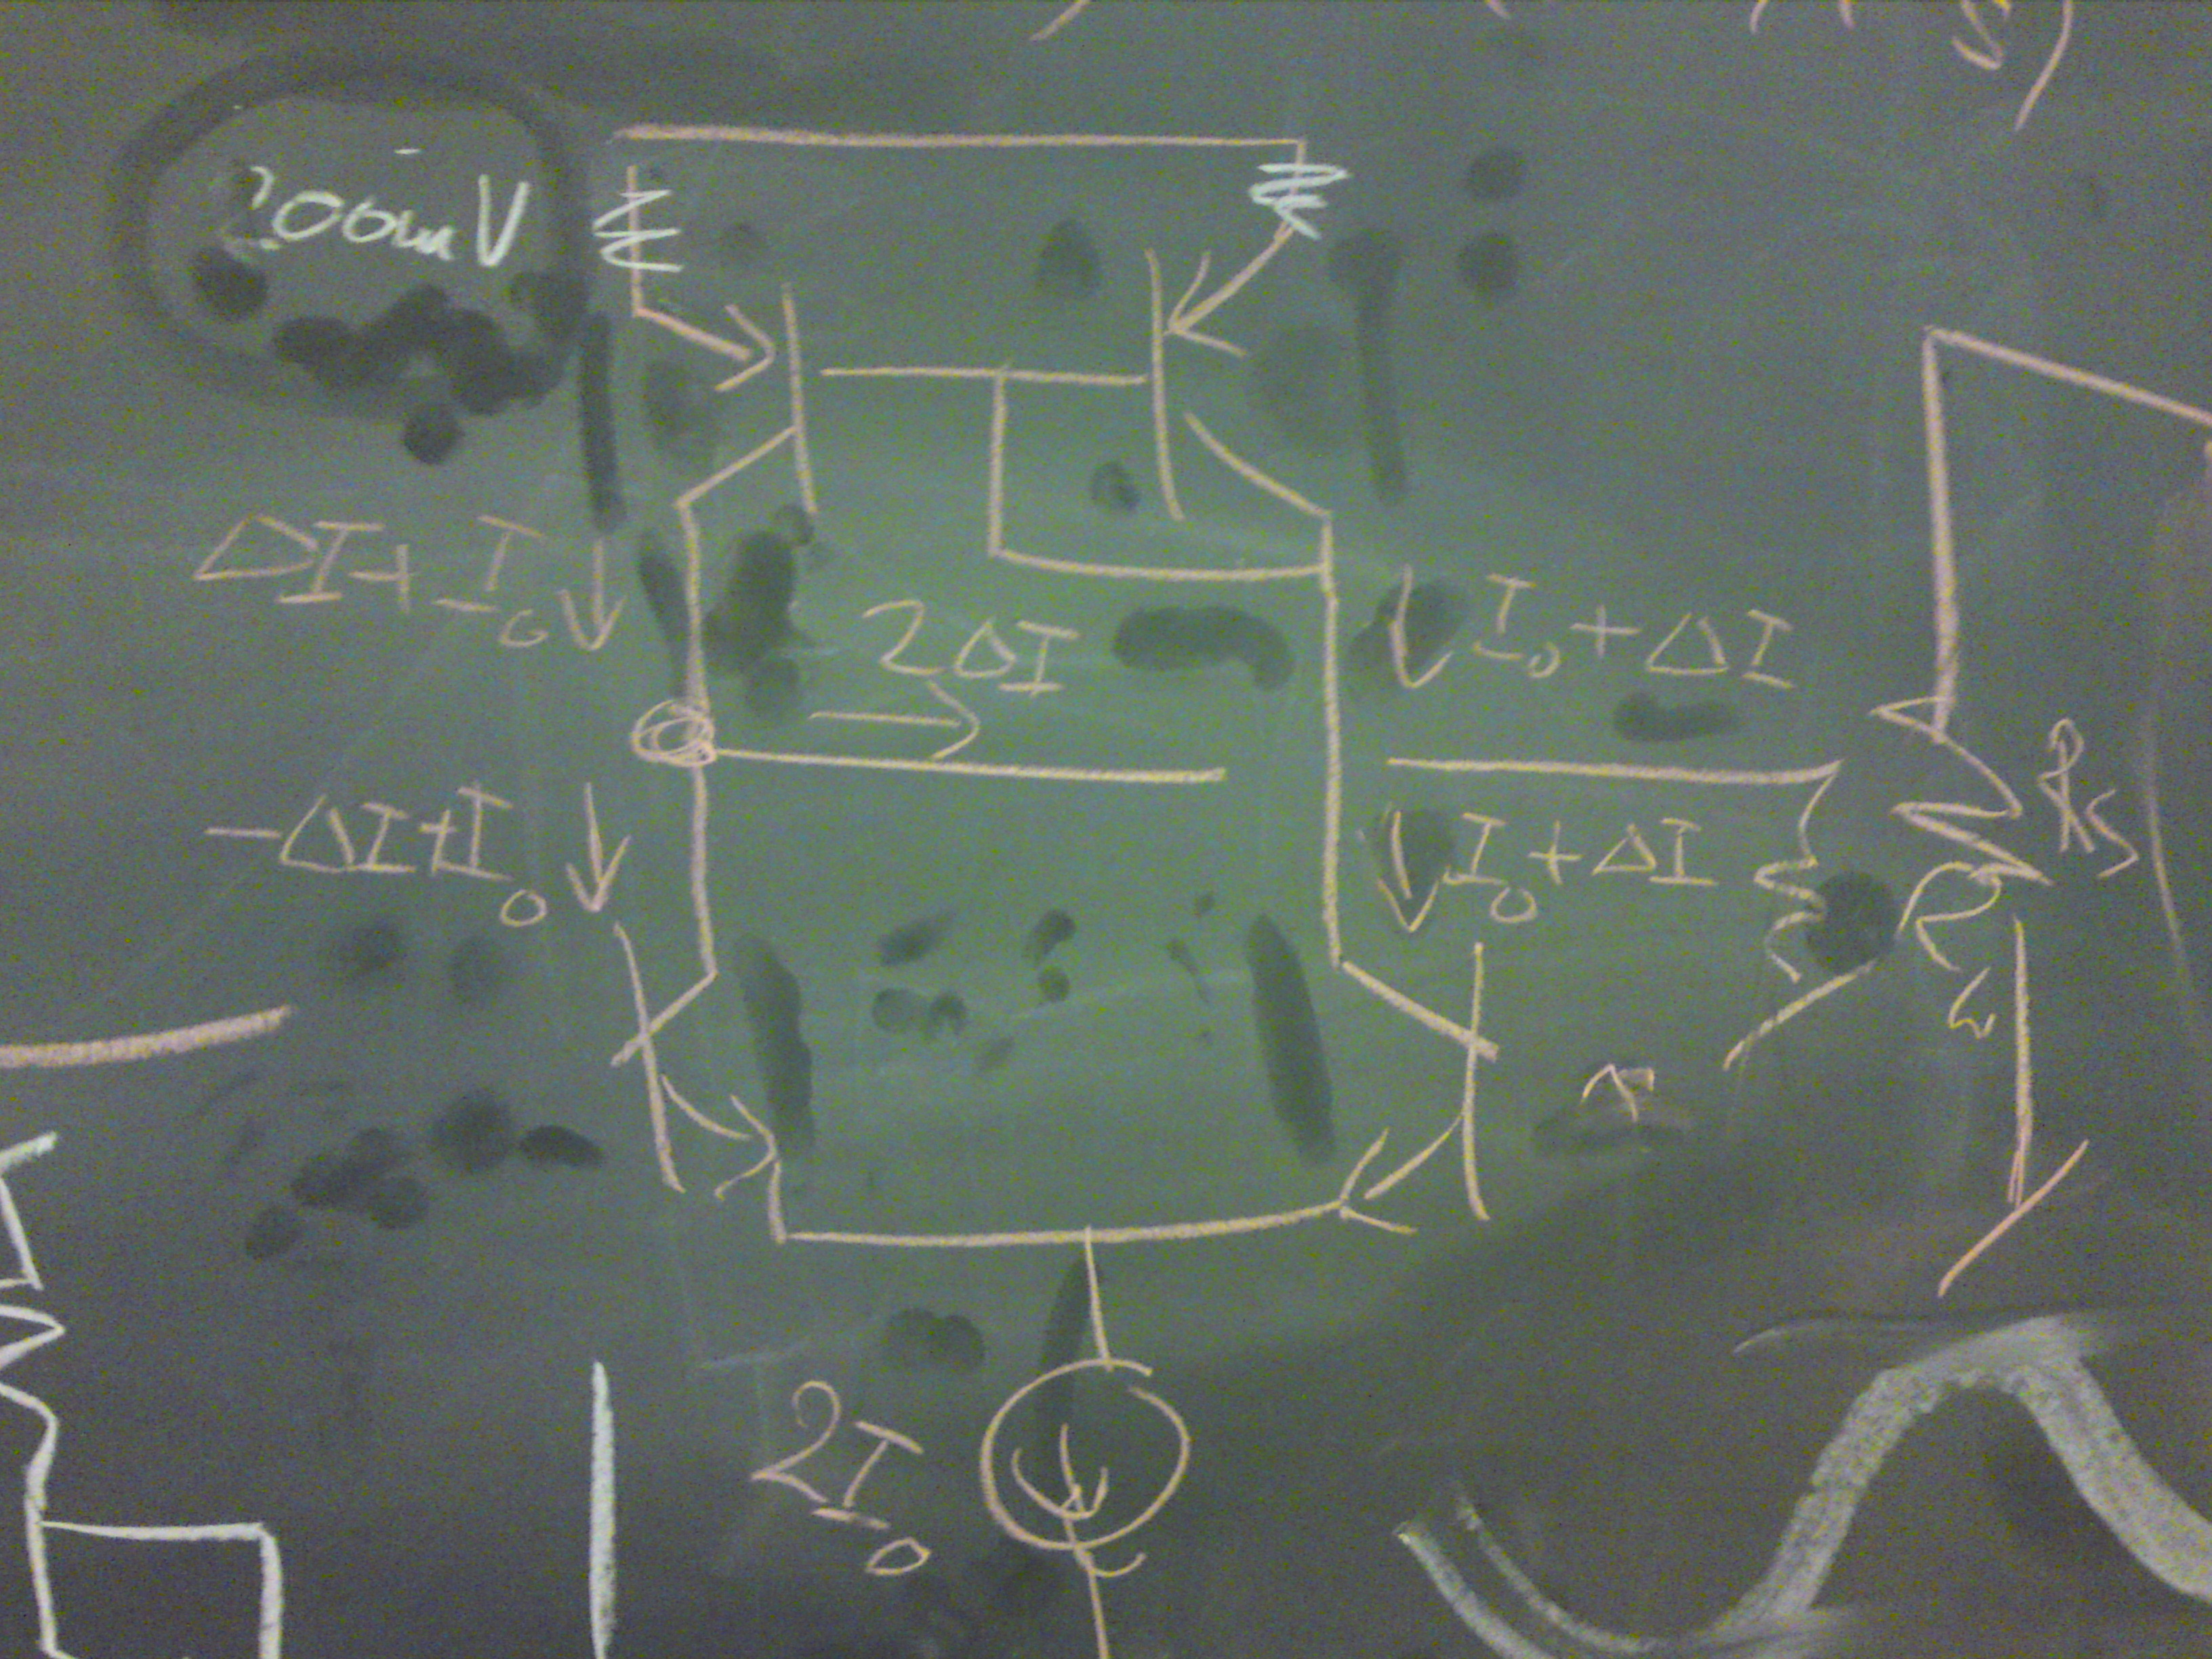 200mV
ΔI+I₀
2ΔI
I₀+ΔI
-ΔI+I₀
I₀+ΔI
Rs
2I₀